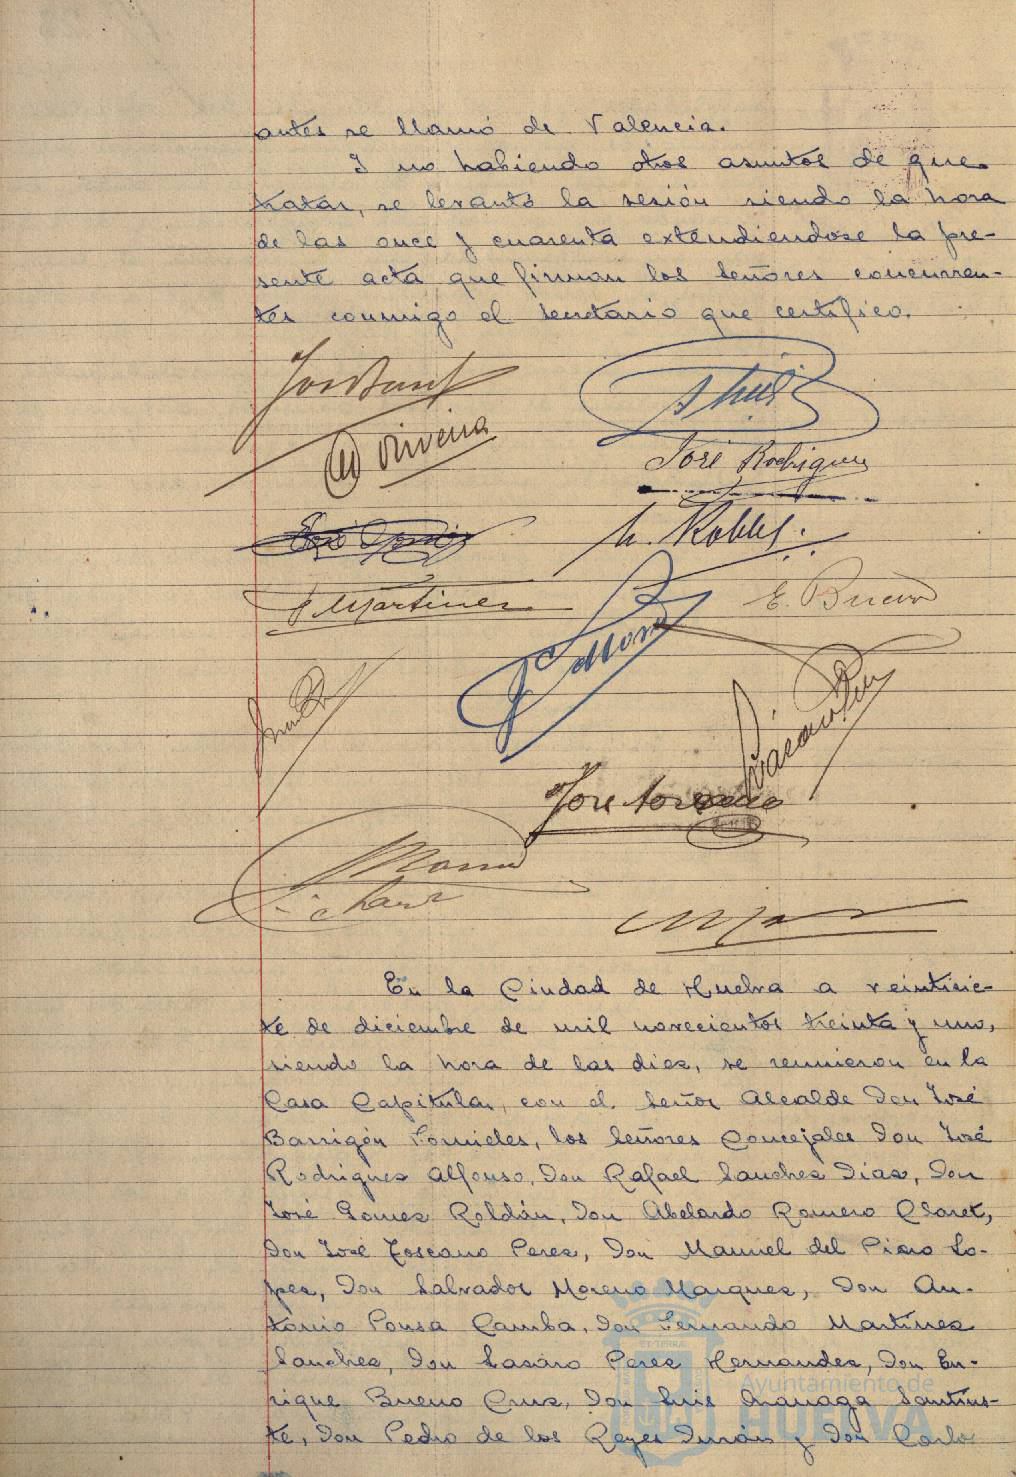 antes se llamó de Valencia.
Y no habiendo otros asuntos de que
tratar, se levantó la sesión siendo la hora
de las once y cuarenta extendiendose la pre-
sente acta que firman los Señores concurren-
tes conmigo el Secretario que certifico.
José Rodriguez
M. Robles.
F Martinez
E. Bueno
En la Ciudad de Huelva a veinticie-
te de diciembre de mil novecientos treinta y uno,
siendo la hora de las diez, se reunieron en la
Casa Capitular, con el Señor Alcalde Don José
Barrigón Fornieles, los Señores Concejales Don José
Rodriguez Alfonso, Don Rafael Sanchez Diaz, Don
José Gomez Roldán, Don Abelardo Romero Claret,
Don José Toscano Perez, Don Manuel del Pino Lo-
pez, Don Salvador Moreno Marquez, Don An-
tonio Pousa Camba, Don Fernando Martínez
Sanchez, Don Lazaro Perez Hernandez, Don En-
rique Bueno Cruz, Don Luis Mariaga Santius-
te, Don Pedro de los Reyes Durán y Don Carlo
Ayuntamiento de
HUELVA